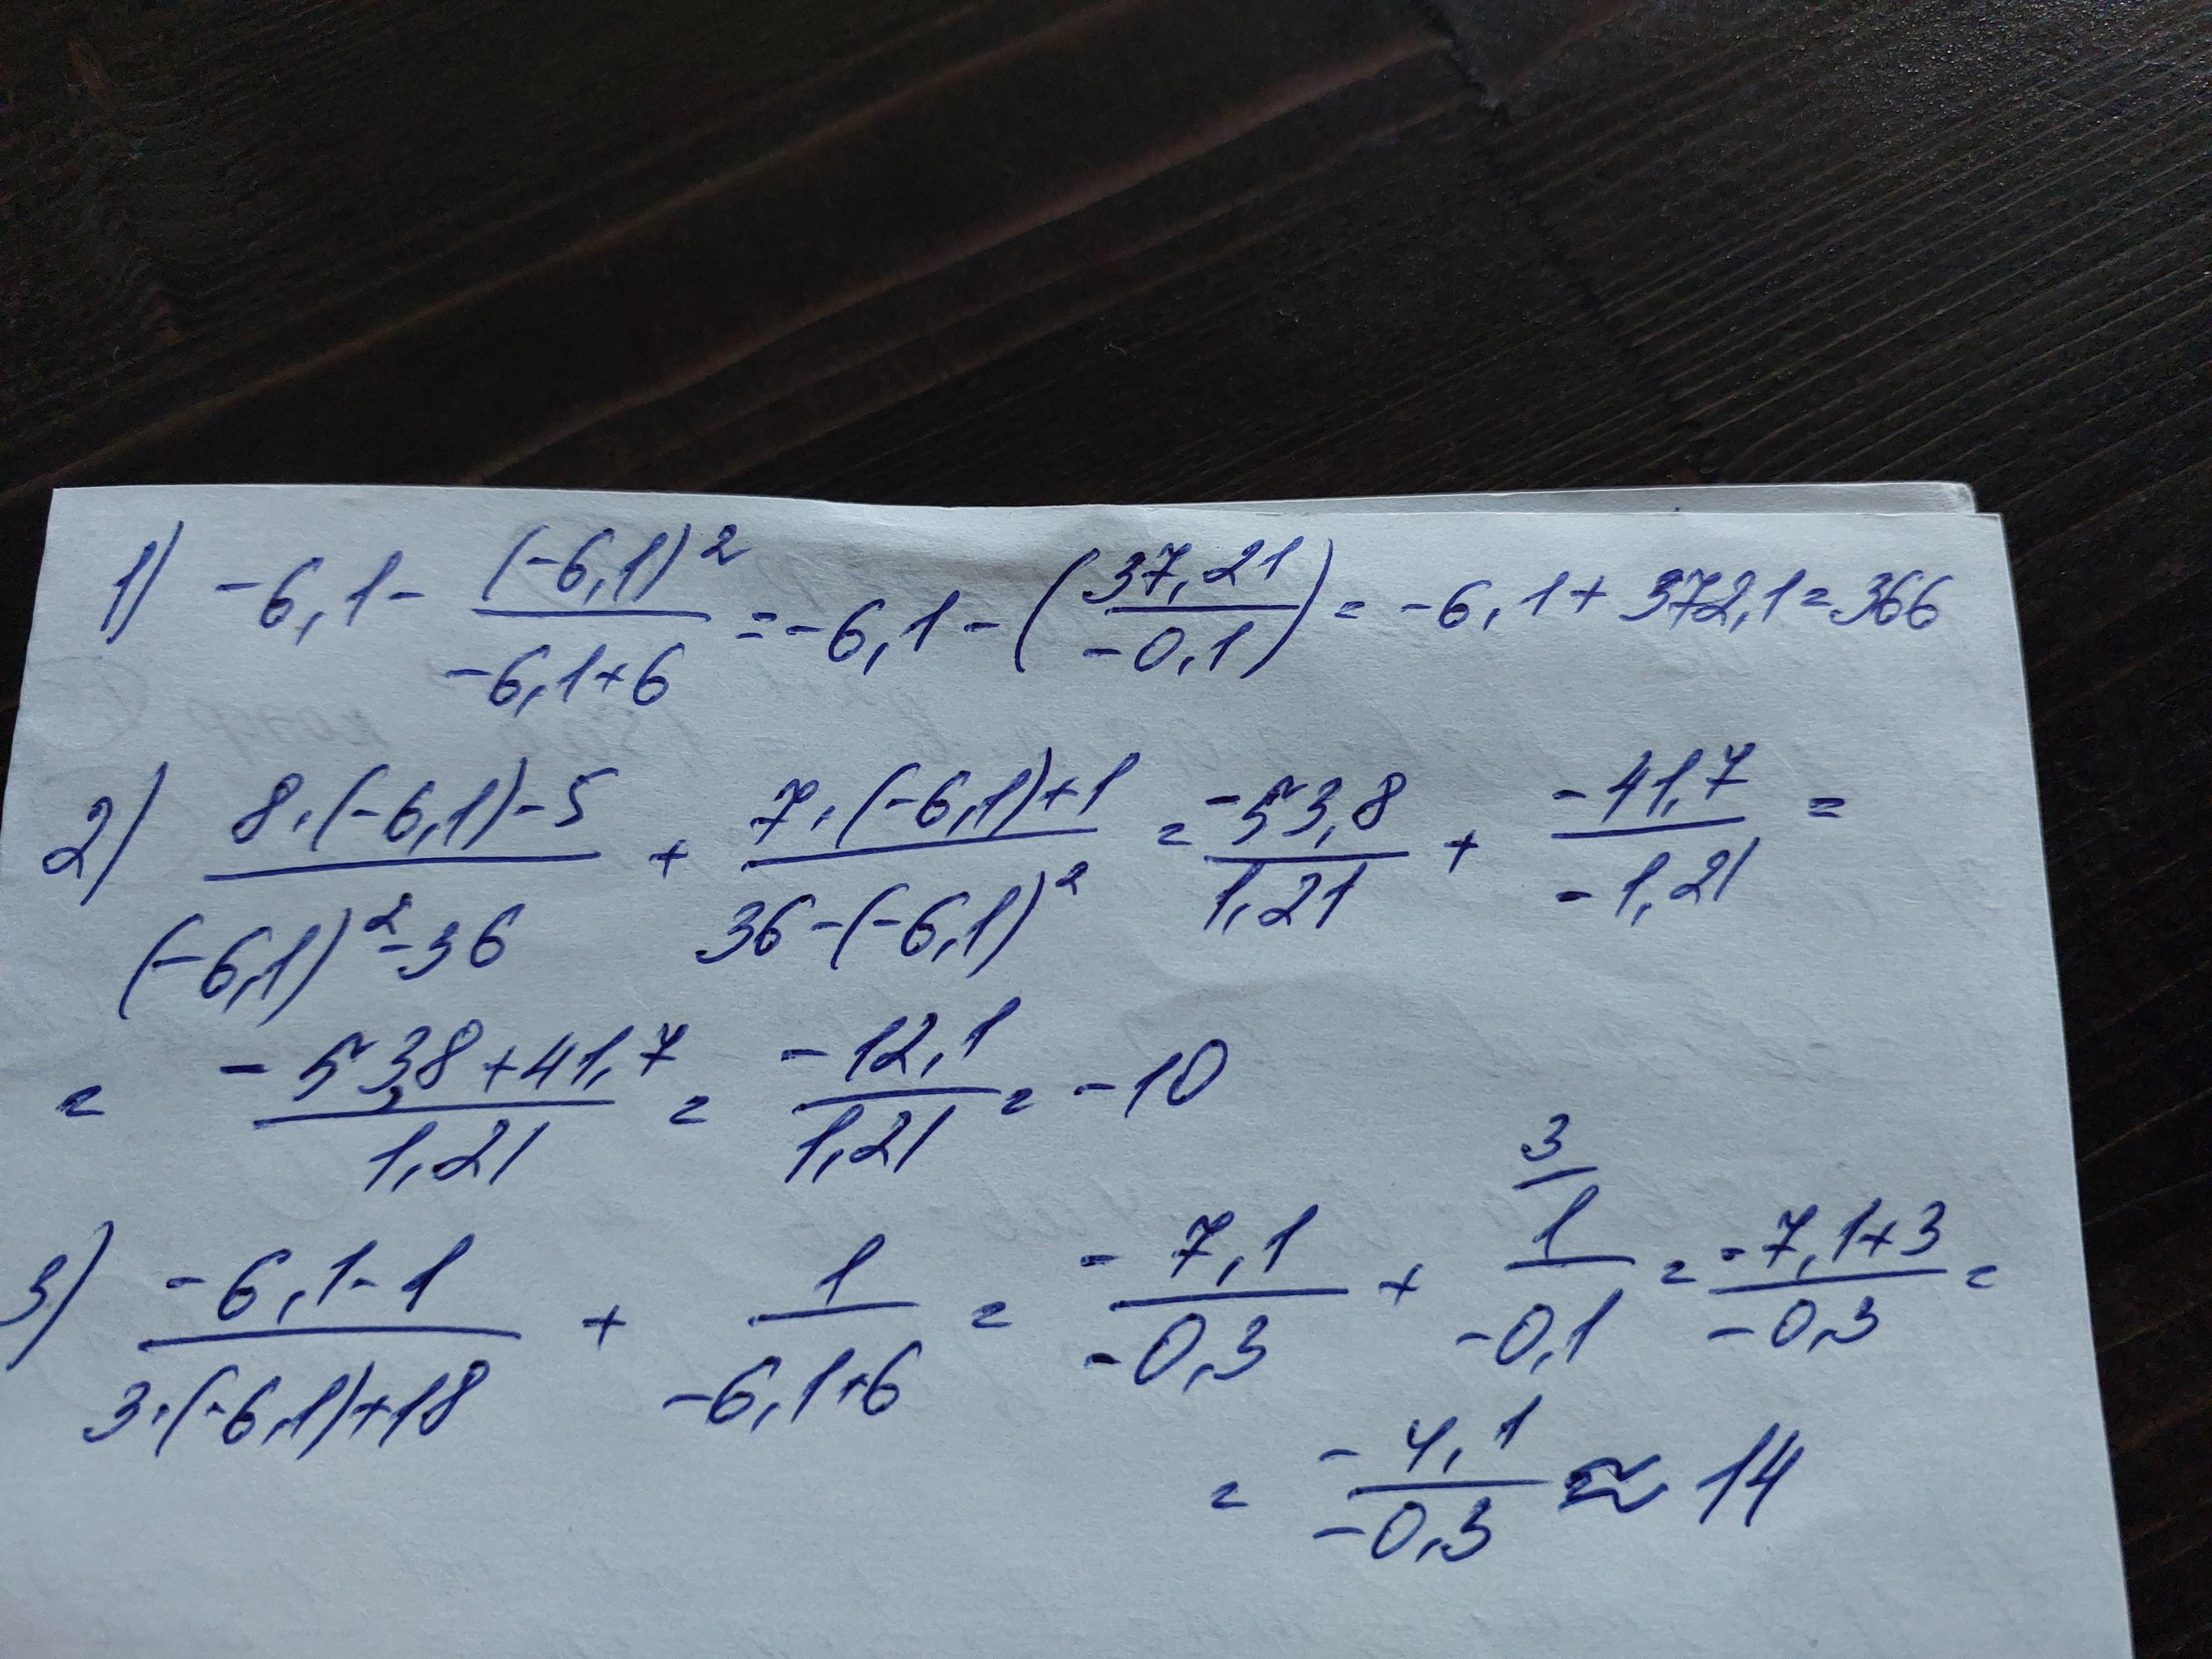 1) -6,1 - (-6,1)²/(-6,1+6) = -6,1 - (37,21/-0,1) = -6,1 + 372,1 = 366
2) (8·(-6,1)-5)/((-6,1)²-36) + (7·(-6,1)+1)/(36-(-6,1)²) = -53,8/1,21 + -41,7/-1,21 =
= (-53,8+41,7)/1,21 = -12,1/1,21 = -10
3) (-6,1-1)/(3·(-6,1)+18) + 1/(-6,1+6) = -7,1/-0,3 + 3/ 1/-0,1 = (-7,1+3)/-0,3 =
= -4,1/-0,3 ≈ 14